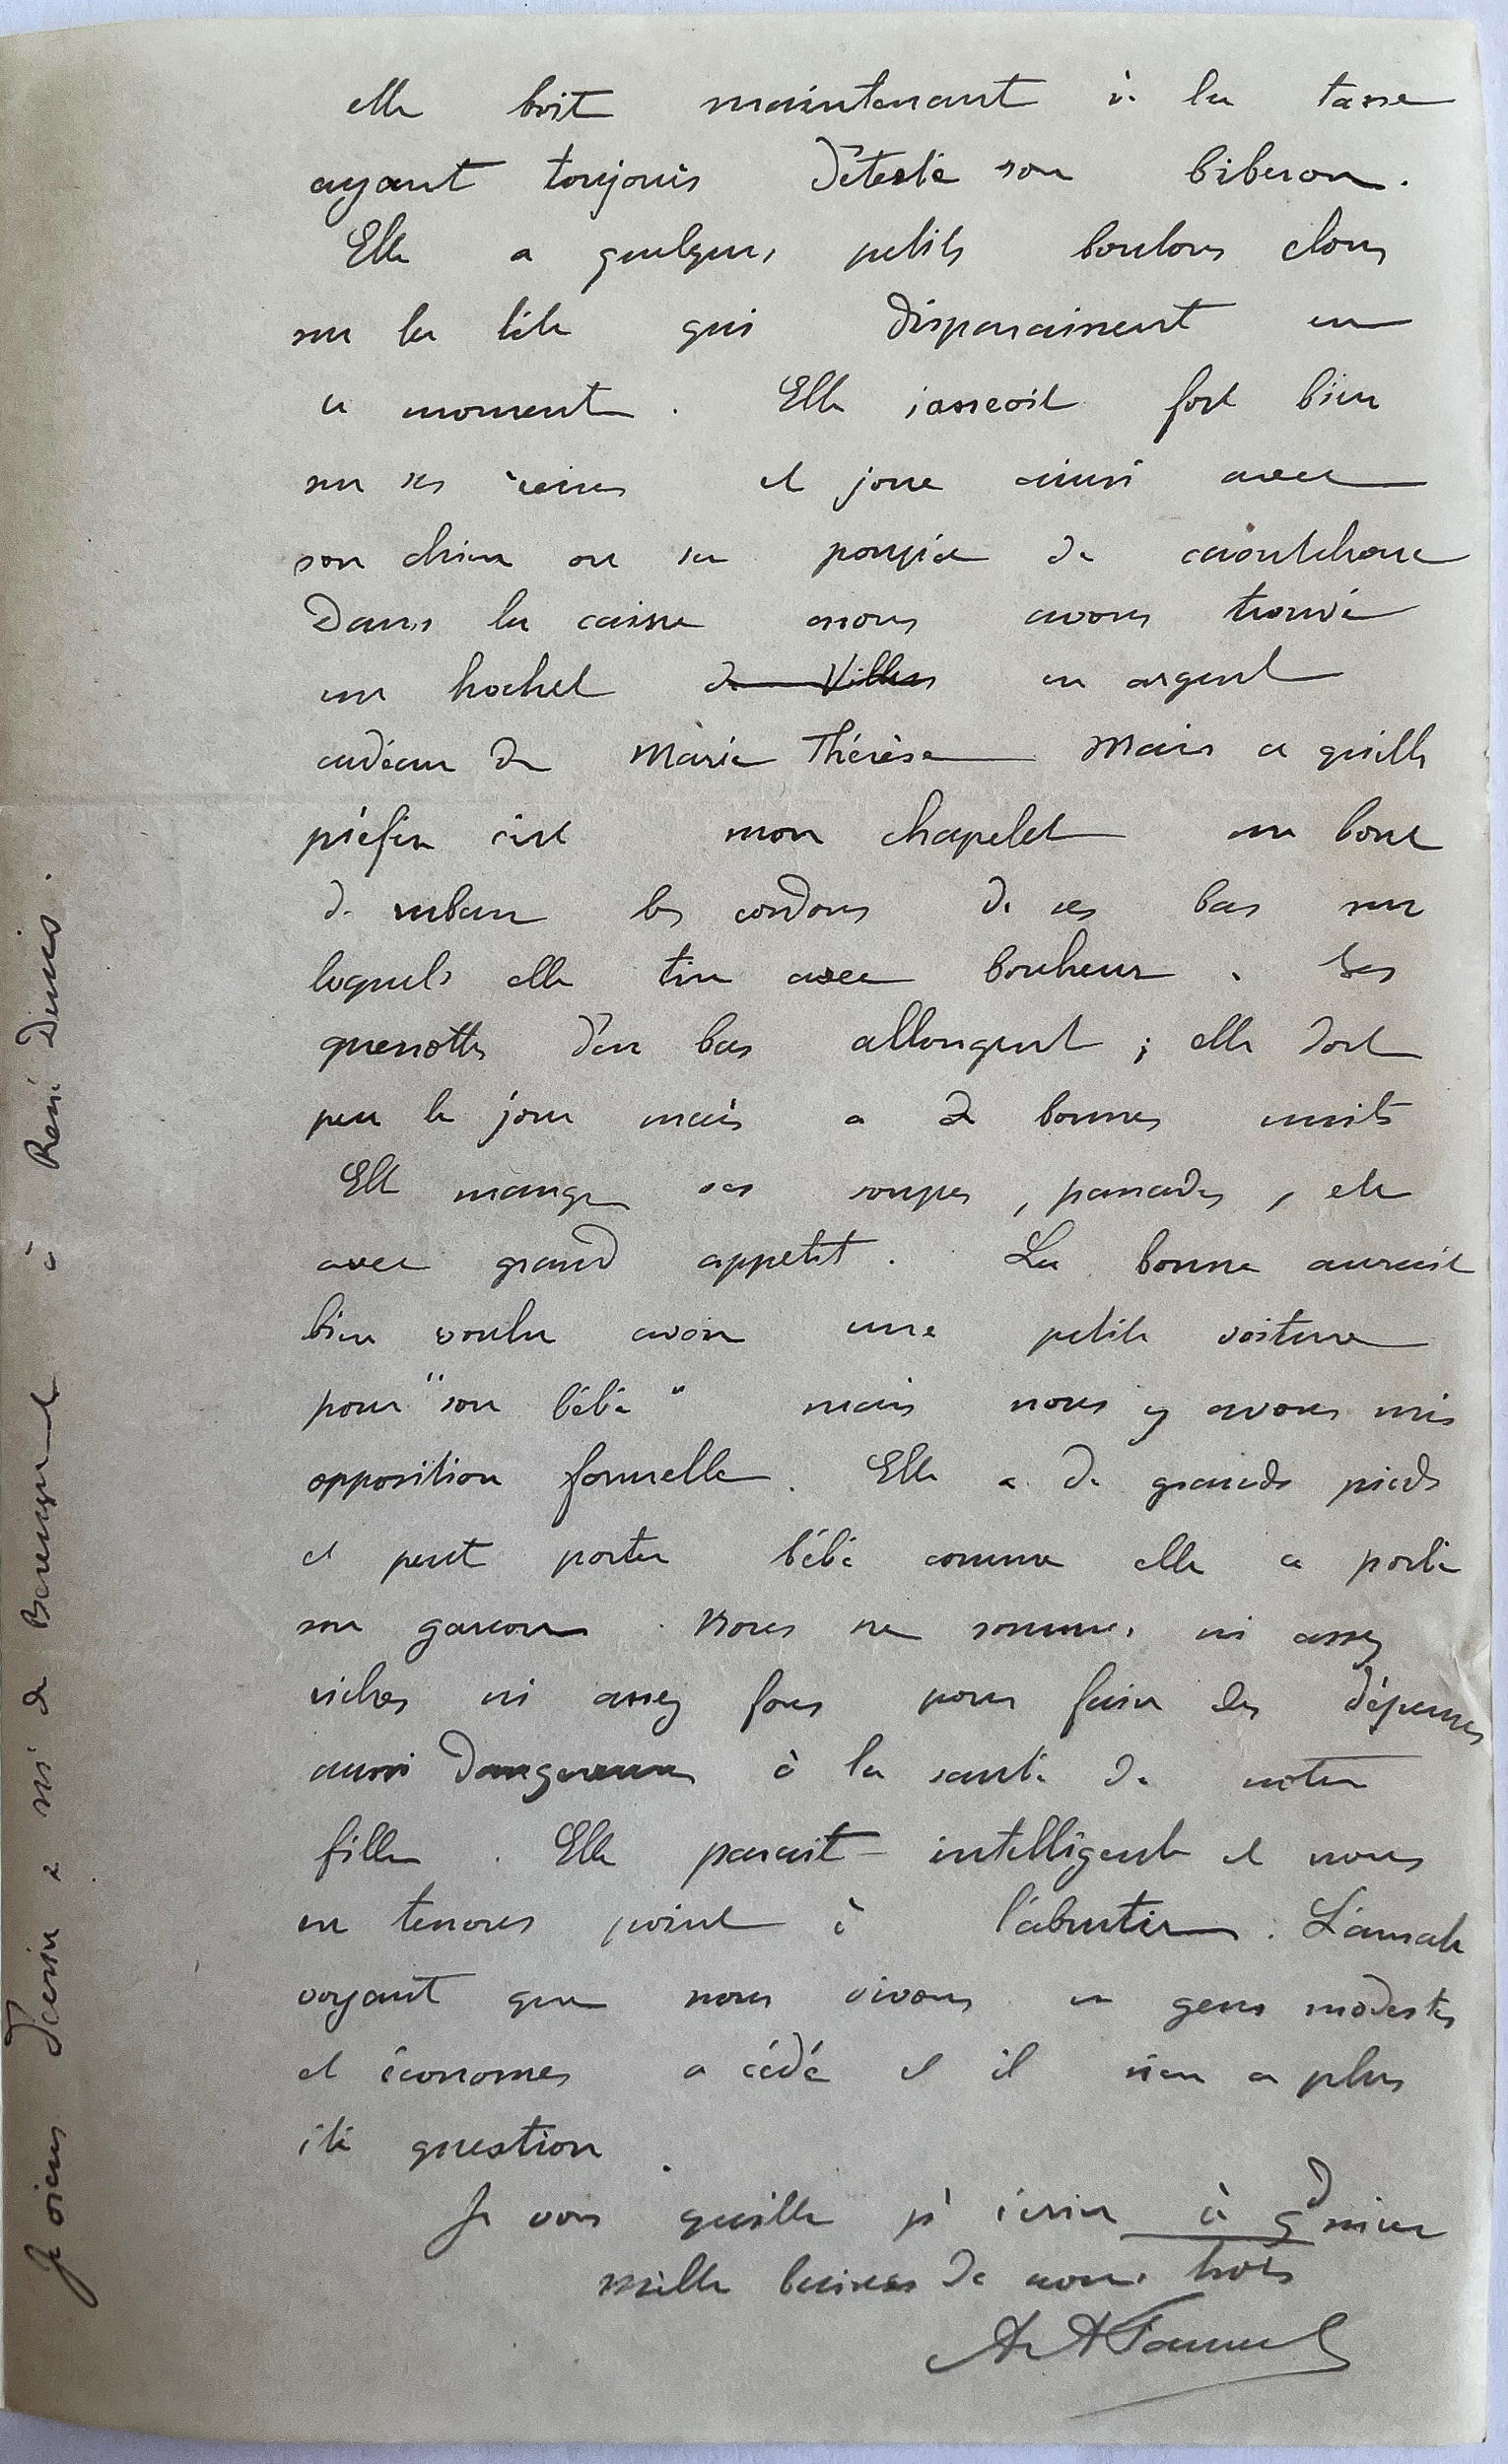 elle boit maintenant à la tasse
ayant toujours détesté son biberon.
Elle a quelques petits boutons clous
sur la tête qui disparaissent en
ce moment. Elle s'asseoit fort bien
sur ses reins et joue ainsi avec
son chien ou sa poupée de caoutchouc
Dans la caisse nous avons trouvé
un hochet de Villers en argent
cadeau de Marie Thérèse Mais ce qu'elle
préfère c'est mon chapelet un bout
de ruban les cordons de ses bas sur
lesquels elle tire avec bonheur. Ses
quenottes d'en bas allongent ; elle dort
peu le jour mais a de bonnes nuits
Elle mange ses soupes, panades, etc
avec grand appetit. La bonne aurait
bien voulu avoir une petite voiture
pour "son bébé" mais nous y avons mis
opposition formelle. Elle a de grands pieds
et peut porter bébé comme elle a porté
son garçon. Nous ne sommes ni assez
riches ni assez fous pour faire des dépenses
aussi dangereuses à la santé de notre
fille. Elle parait intelligente et nous
ne tenons point à l'abrutir. L'amah
voyant que nous vivons en gens modestes
et économes a cédé et il n'en a plus
été question.
Je vois qu'elle p^t écrire à g^d mère
Mille baisers de nous trois
Je viens d'écrire à de à René Denis.